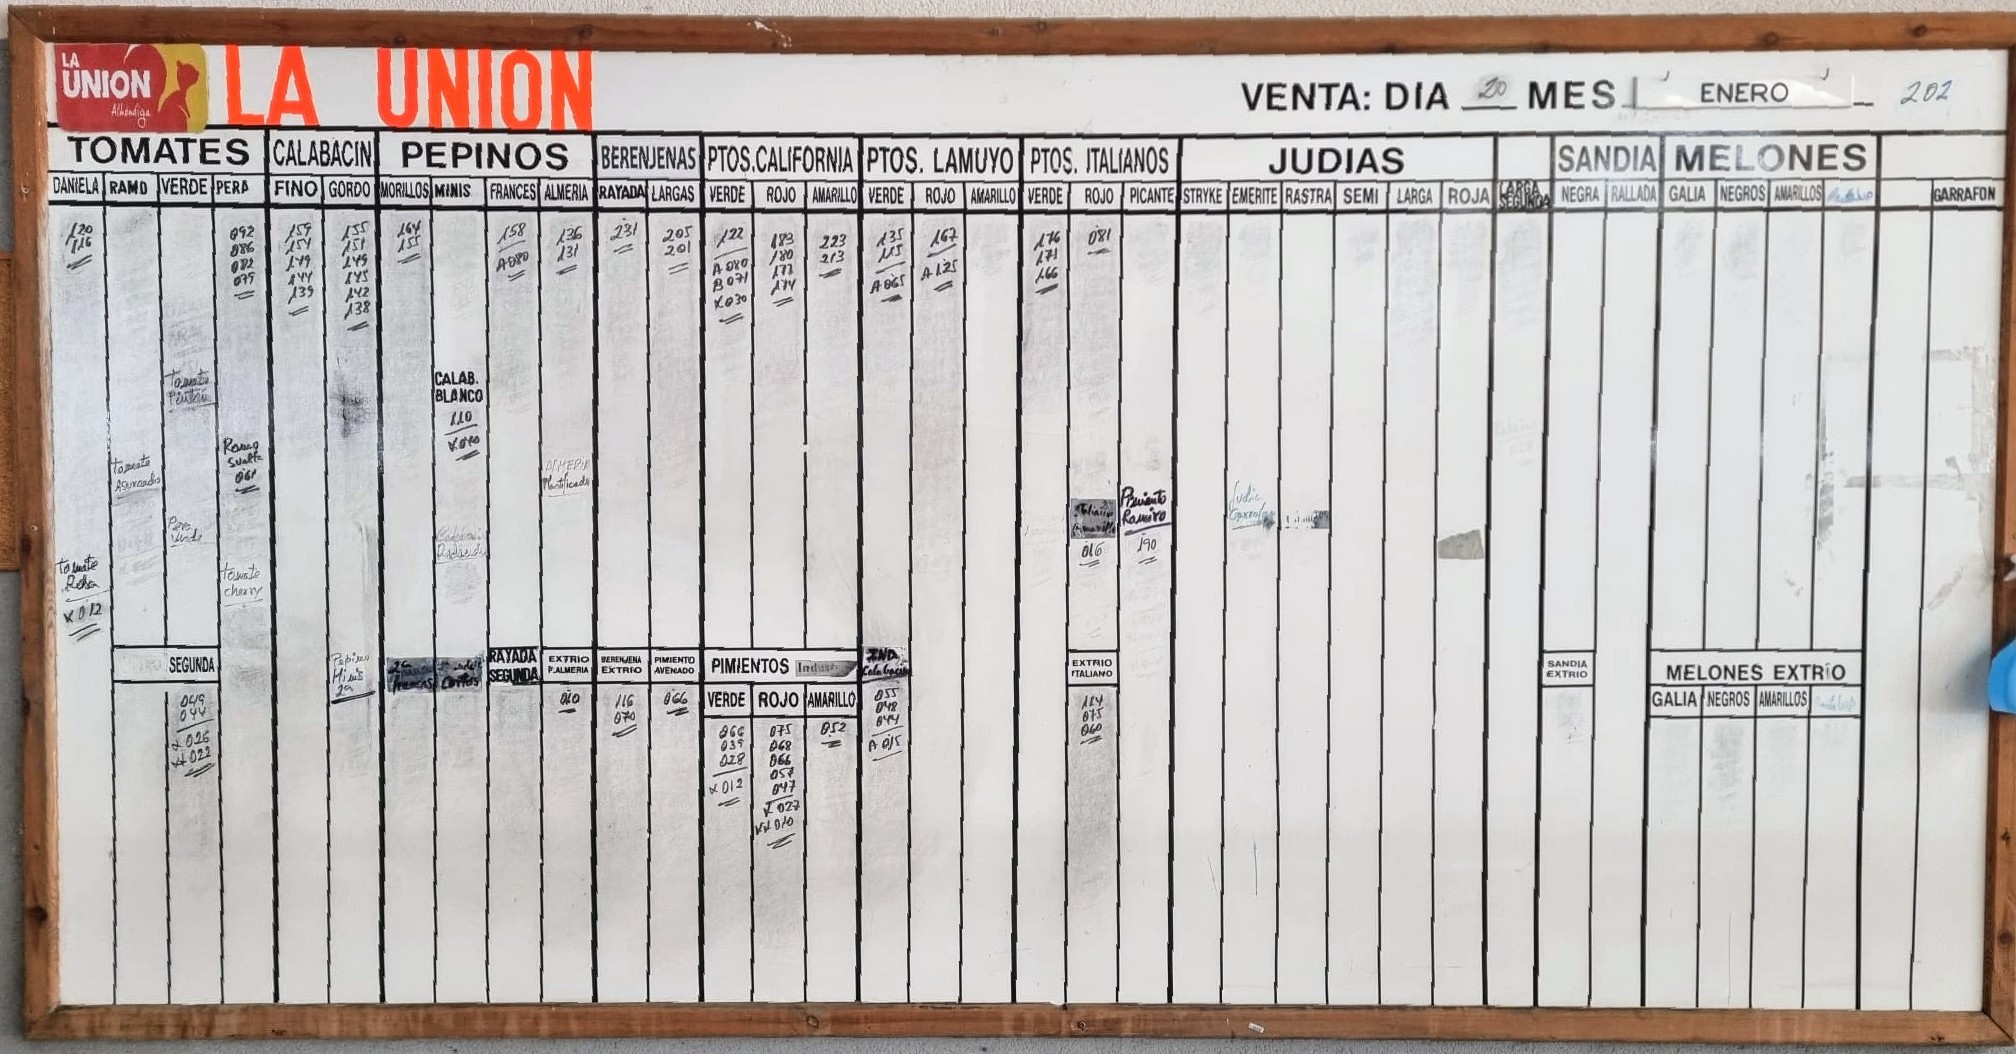 LA
UNION
Alhóndiga
LA UNION
VENTA: DIA 20 MES ENERO 202
TOMATES CALABACIN PEPINOS BERENJENAS PTOS.CALIFORNIA PTOS. LAMUYO PTOS. ITALIANOS JUDIAS SANDIA MELONES
DANIELA RAMO VERDE PERA FINO GORDO MORILLOS MINIS FRANCES ALMERIA RAYADA LARGAS VERDE ROJO AMARILLO VERDE ROJO AMARILLO VERDE ROJO PICANTE STRYKE EMERITE RASTRA SEMI LARGA ROJA LARGA SEGUNDA NEGRA RALLADA GALIA NEGROS AMARILLOS GARRAFON
120
116
092
086
082
079
159
154
149
144
139
155
151
149
145
142
138
164
155
158
A 080
136
131
231
205
201
122
A 080
B 071
X 030
183
180
177
174
223
213
135
115
A 065
167
A 125
176
171
166
081
CALAB.
BLANCO
110
X 040
Tomate
Pintón
Ramo
Suelto
061
Tomate
Asurcado
ALMERIA
Plastificado
Pera
Verde
Tomate
Reba
X 012
Tomate
cherry
Italiano
Amarillo
016
Pimiento
Ramiro
190
Judia
SEGUNDA
049
044
X 026
XX 022
Pepino
Minis
2ª
2ª
Frances
Cortos
RAYADA
SEGUNDA
EXTRIO
P.ALMERIA
010
BERENJENA
EXTRIO
116
070
PIMIENTO
AVENADO
066
PIMIENTOS Indust
VERDE ROJO AMARILLO
066
039
028
X 012
075
068
066
057
047
X 027
XX 010
052
IND.
Calabacin
055
048
044
A 015
EXTRIO
ITALIANO
114
075
060
SANDIA
EXTRIO
MELONES EXTRÍO
GALIA NEGROS AMARILLOS